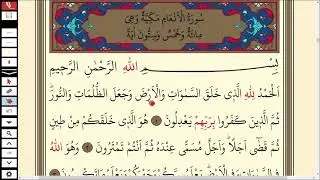 سُورَةُ الْاَنْعَامِ مَكِّيَّةٌ وَهِيَ
مِائَةٌ وَخَمْسٌ وَسِتُّونَ اٰيَةً
بِسْمِ اللّٰهِ الرَّحْمٰنِ الرَّحٖيمِ
اَلْحَمْدُ لِلّٰهِ الَّذٖي خَلَقَ السَّمٰوَاتِ وَالْاَرْضَ وَجَعَلَ الظُّلُمَاتِ وَالنُّورَ
ثُمَّ الَّذٖينَ كَفَرُوا بِرَبِّهِمْ يَعْدِلُونَ ١ هُوَ الَّذٖي خَلَقَكُمْ مِنْ طٖينٍ
ثُمَّ قَضٰٓى اَجَلًا وَاَجَلٌ مُسَمًّى عِنْدَهُ ثُمَّ اَنْتُمْ تَمْتَرُونَ ٢ وَهُوَ اللّٰهُ